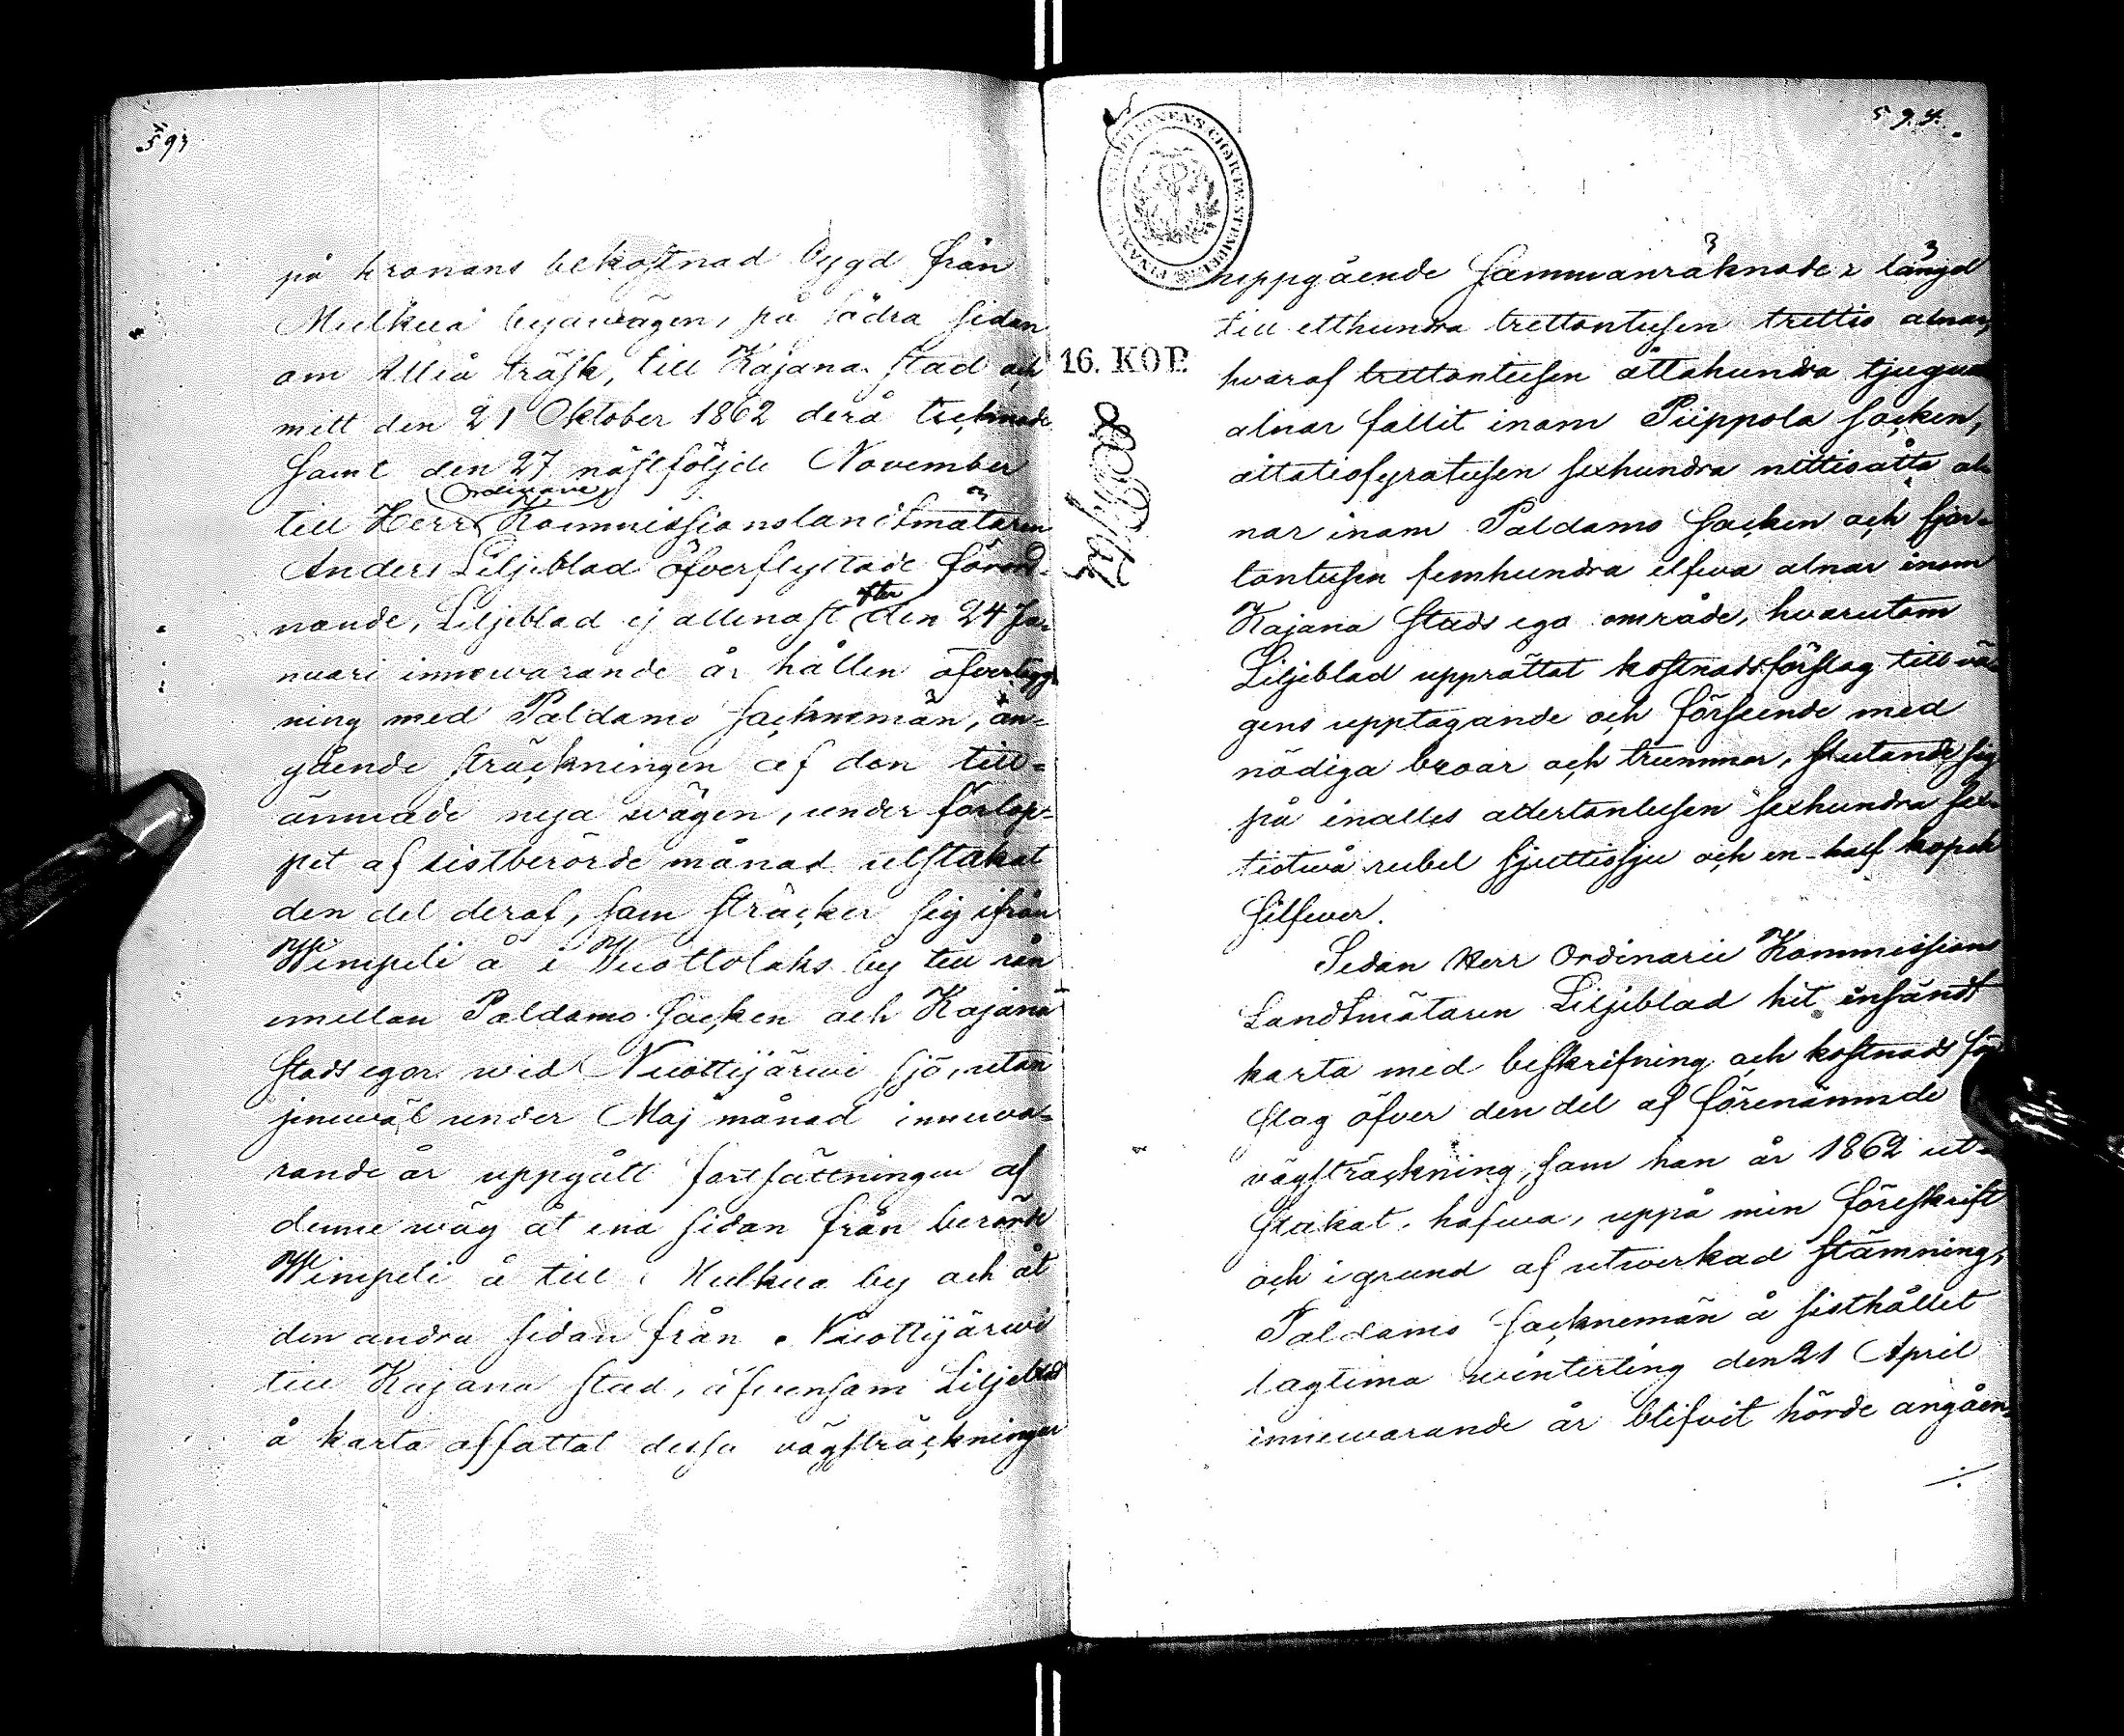 593
på kronans bekostnad bygd från
Mulkua byawägen, på södra sidan
om Uleå träsk, till Kajana stad och
mitt den 21 Oktober 1862 derå tecknade
samt den 27 nästföljde November
Ordinarie
till Herr Kommissionslandtmätaren
Anders Liljeblad öfverflyttade förord-
nande, Liljeblad ej allenast efter den 24 Ja-
nuari innewarande år hållen öfverlägg-
ning med Paldamo sockneman, an-
gående sträckningen af den till-
ämnade nya wägen, under förlop-
pet af sistberörde månad utstakat
den del deraf, som sträcker sig ifrån
Wimpeli å i Wuottolaks by till rån
emellan Paldamo socken och Kajana
stads egor wid Nuottijärwi sjö, utan
jemwäl under Maj månad innewa-
rande år uppgått fortsättningen af
denne wäg åt ena sidan från berörde
Wimpeli å till Mulkua by och åt
den andra sidan från Nuottijärwi
till Kajana stad, äfvensom Liljeblad
å karta affattat dessa vägsträckningar
594.
16. KOP.
uppgående sammanräknade i längd
till etthundra trettontusen trettio alnar,
hvaraf trettontusen åttahundra tjuguen
alnar fallit inom Piippola socken,
åttatiofyratusen sexhundra nittioåtta al-
nar inom Paldamo socken och fjor-
tontusen femhundra elfwa alnar inom
Kajana stads ego område, hvarutom
Liljeblad upprättat kostnadsförslag till vä-
gens upptagande och förseende med
nödiga broar och trummor, slutande sig
på inalles adertontusen sexhundra sex-
tiotwå rubel sjuttiosju och en half kopek
silfwer.
Sedan Herr Ordinarie Kommissions
Landtmätaren Liljeblad hit insändt
karta med beskrifning och kostnads för-
slag öfver den del af förenämnde
vägsträckning, som han år 1862 ut-
stakat, hafwa, uppå min föreskrift
och i grund af utwerkad stämning,
Paldamo socknemän å sisthållet
lagtima winterting den 21 April
innewarande år blifvit hörde angåen-